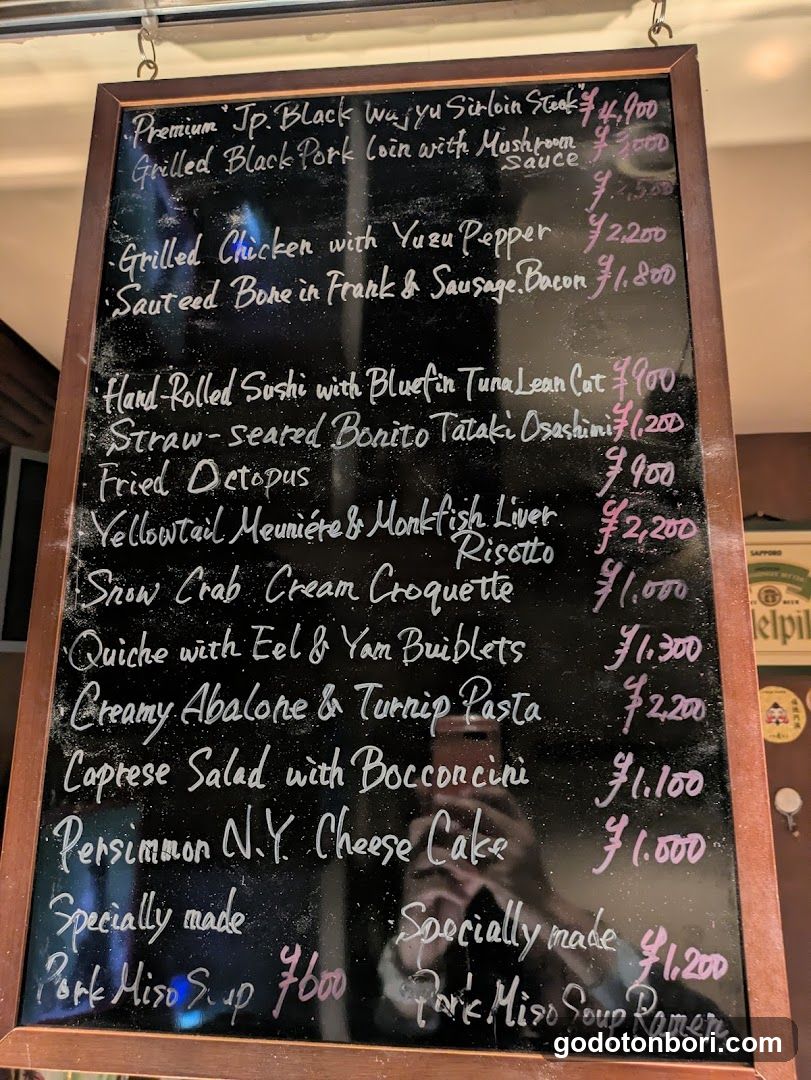 Premium "Jp. Black Wagyu Sirloin Steak" ¥4,900
Grilled Black Pork Loin with Mushroom sauce ¥3,000
¥2,500
·Grilled Chicken with Yuzu Pepper ¥2,200
·Sauteed Bone in Frank & Sausage.Bacon ¥1.800
·Hand-Rolled Sushi with Bluefin Tuna Lean Cut ¥900
·Straw-seared Bonito Tataki Osashimi ¥1,200
·Fried Octopus ¥900
·Yellowtail Meuniére & Monkfish Liver Risotto ¥2,200
·Snow Crab Cream Croquette ¥1.000
·Quiche with Eel & Yam Buiblets ¥1.300
·Creamy Abalone & Turnip Pasta ¥2,200
·Caprese Salad with Bocconcini ¥1.100
·Persimmon N.Y. Cheese Cake ¥1.000
·Specially made
Pork Miso Soup ¥600
·Specially made ¥1,200
Pork Miso Soup Ramen
SAPPORO
godotonbori.com